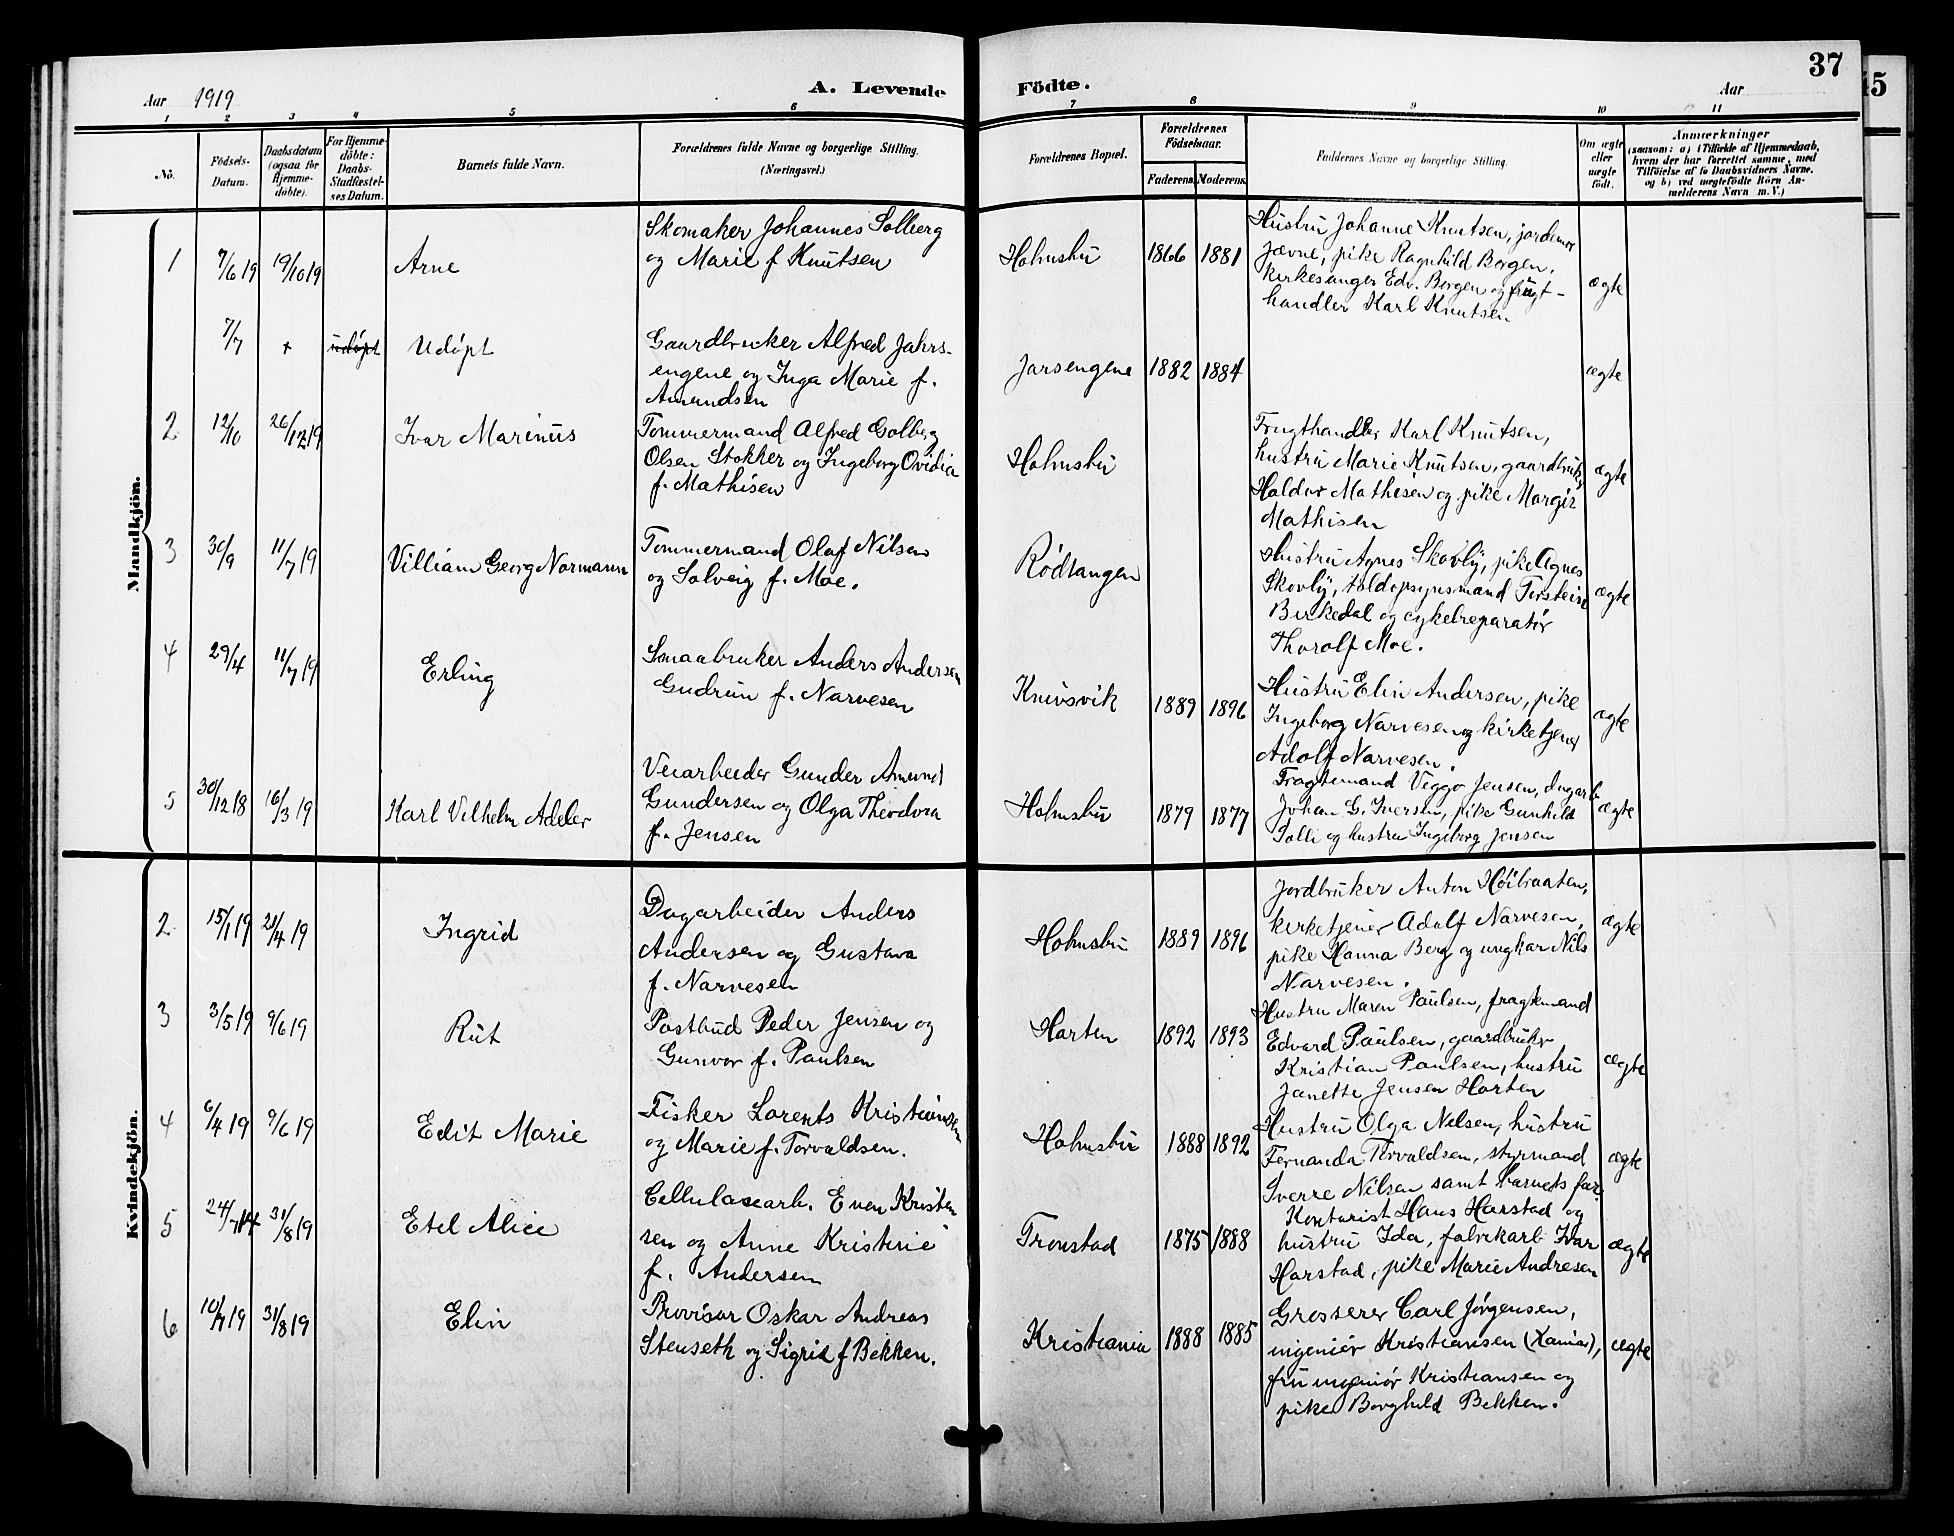 37
15
Aar 1919
A. Levende
Födte.
Aar
1 2 3 4 5 6 7 8 9 10 11
No.
Födsels-
Datum.
Daabsdatum
(ogsaa for
Hjemme-
döbte).
For Hjemme-
döbte:
Daabs-
Stadfæstel-
ses Datum.
Barnets fulde Navn.
Forældrenes fulde Navne og borgerlige Stilling.
(Næringsvei.)
Forældrenes Bopæl.
Forældrenes
Födselsaar.
Faderens. Moderens.
Faddernes Navne og borgerlige Stilling.
Om ægte
eller
uægte
födt.
Anmærkninger
(saasom: a) (Tilfælde af Hjemmedaab,
hvem der har forrettet samme, med
Tilföielse af to Daabsvidners Navne,
og b) ved uægtefödte Börn An-
melderens Navn m. V.)
Mandkjön.
1 7/6 19 19/10 19 Arne
Skomaker Johannes Solberg
og Marie f Knutsen
Holmsbu 1866 1881
Hustru Johanne Knutsen, jordemor
Jævne, pike Ragnhild Borgen,
kirkesanger Edv. Borgen og frugt-
handler Karl Knutsen
ægte
7/7 + udöpt Udöpt
Gaardbruker Alfred Jahrs-
engene og Inga Marie f.
Amundsen
Jarsengene 1882 1884
ægte
2 12/10 26/12 19 Ivar Marinus
Tommermand Alfred Golberg
Olsen Stokker og Ingeborg Ovidia
f. Mathisen
Holmsbu
Frugthandler Karl Knutsen,
hustru Marie Knutsen, gaardbruker
Haldor Mathisen og pike Margit
Mathisen
ægte
3 30/9 11/7 19 Villiam Georg Normann
Tommermand Olaf Nilsen
og Solveig f. Moe.
Rödtangen
Hustru Agnes Skovly, pike Agnes
Skovly, toldopsynsmand Torstein
Birkedal og cykelreparatör
Thorolf Moe.
ægte
4 29/4 11/7 19 Erling
Smaabruker Anders Andersen
Gudrun f. Narvesen
Knivsvik 1889 1896
Hustru Elin Andersen, pike
Ingeborg Narvesen og kirketjener
Adolf Narvesen.
ægte
5 30/12 18 16/3 19 Karl Vilhelm Adeler
Veiarbeider Gunder Amund
Gundersen og Olga Theodora
f. Jensen
Holmsbu 1879 1877
Fragtemand Viggo Jensen, dagarb
Johan G. Iversen, pike Gunhild
Solli og hustru Ingeborg Jensen
ægte
Kvindekjön.
2 15/1 19 21/4 19 Ingrid
Dagarbeider Anders
Andersen og Gustava
f. Narvesen
Holmsbu 1889 1896
Jordbruker Anton Höibraaten,
kirketjener Adolf Narvesen,
pike Hanna Berg og ungkar Nils
Narvesen.
ægte
3 3/5 19 9/6 19 Rut
Postbud Peder Jensen og
Gunvor f. Paulsen
Horten 1892 1893
Hustru Maren Paulsen, fragtemand
Edvard Paulsen, gaardbruker
Kristian Paulsen, hustru
Janette Jensen Horten
ægte
4 6/4 19 9/6 19 Edit Marie
Fisker Lorents Kristiansen
og Marie f. Torvaldsen.
Holmsbu 1888 1892
Hustru Olga Nilsen, hustru
Fernanda Torvaldsen, styrmand
Sverre Nilsen samt barnets far.
ægte
5 24/7 14 31/8 19 Etel Alice
Cellulosearb. Even Kristen
sen og Anne Kristine
f. Andersen
Tronstad 1875 1888
Kontorist Hans Harstad og
hustru Ida, fabrikarb Ivar
Harstad, pike Marie Andresen
ægte
6 10/7 19 31/8 19 Elin
Provisor Oskar Andreas
Stenseth og Sigrid f Bekken.
Kristiania 1888 1885
Grosserer Carl Jörgensen,
ingeniör Kristiansen (Kania),
fru ingeniör Kristiansen og
pike Borghild Bekken.
ægte